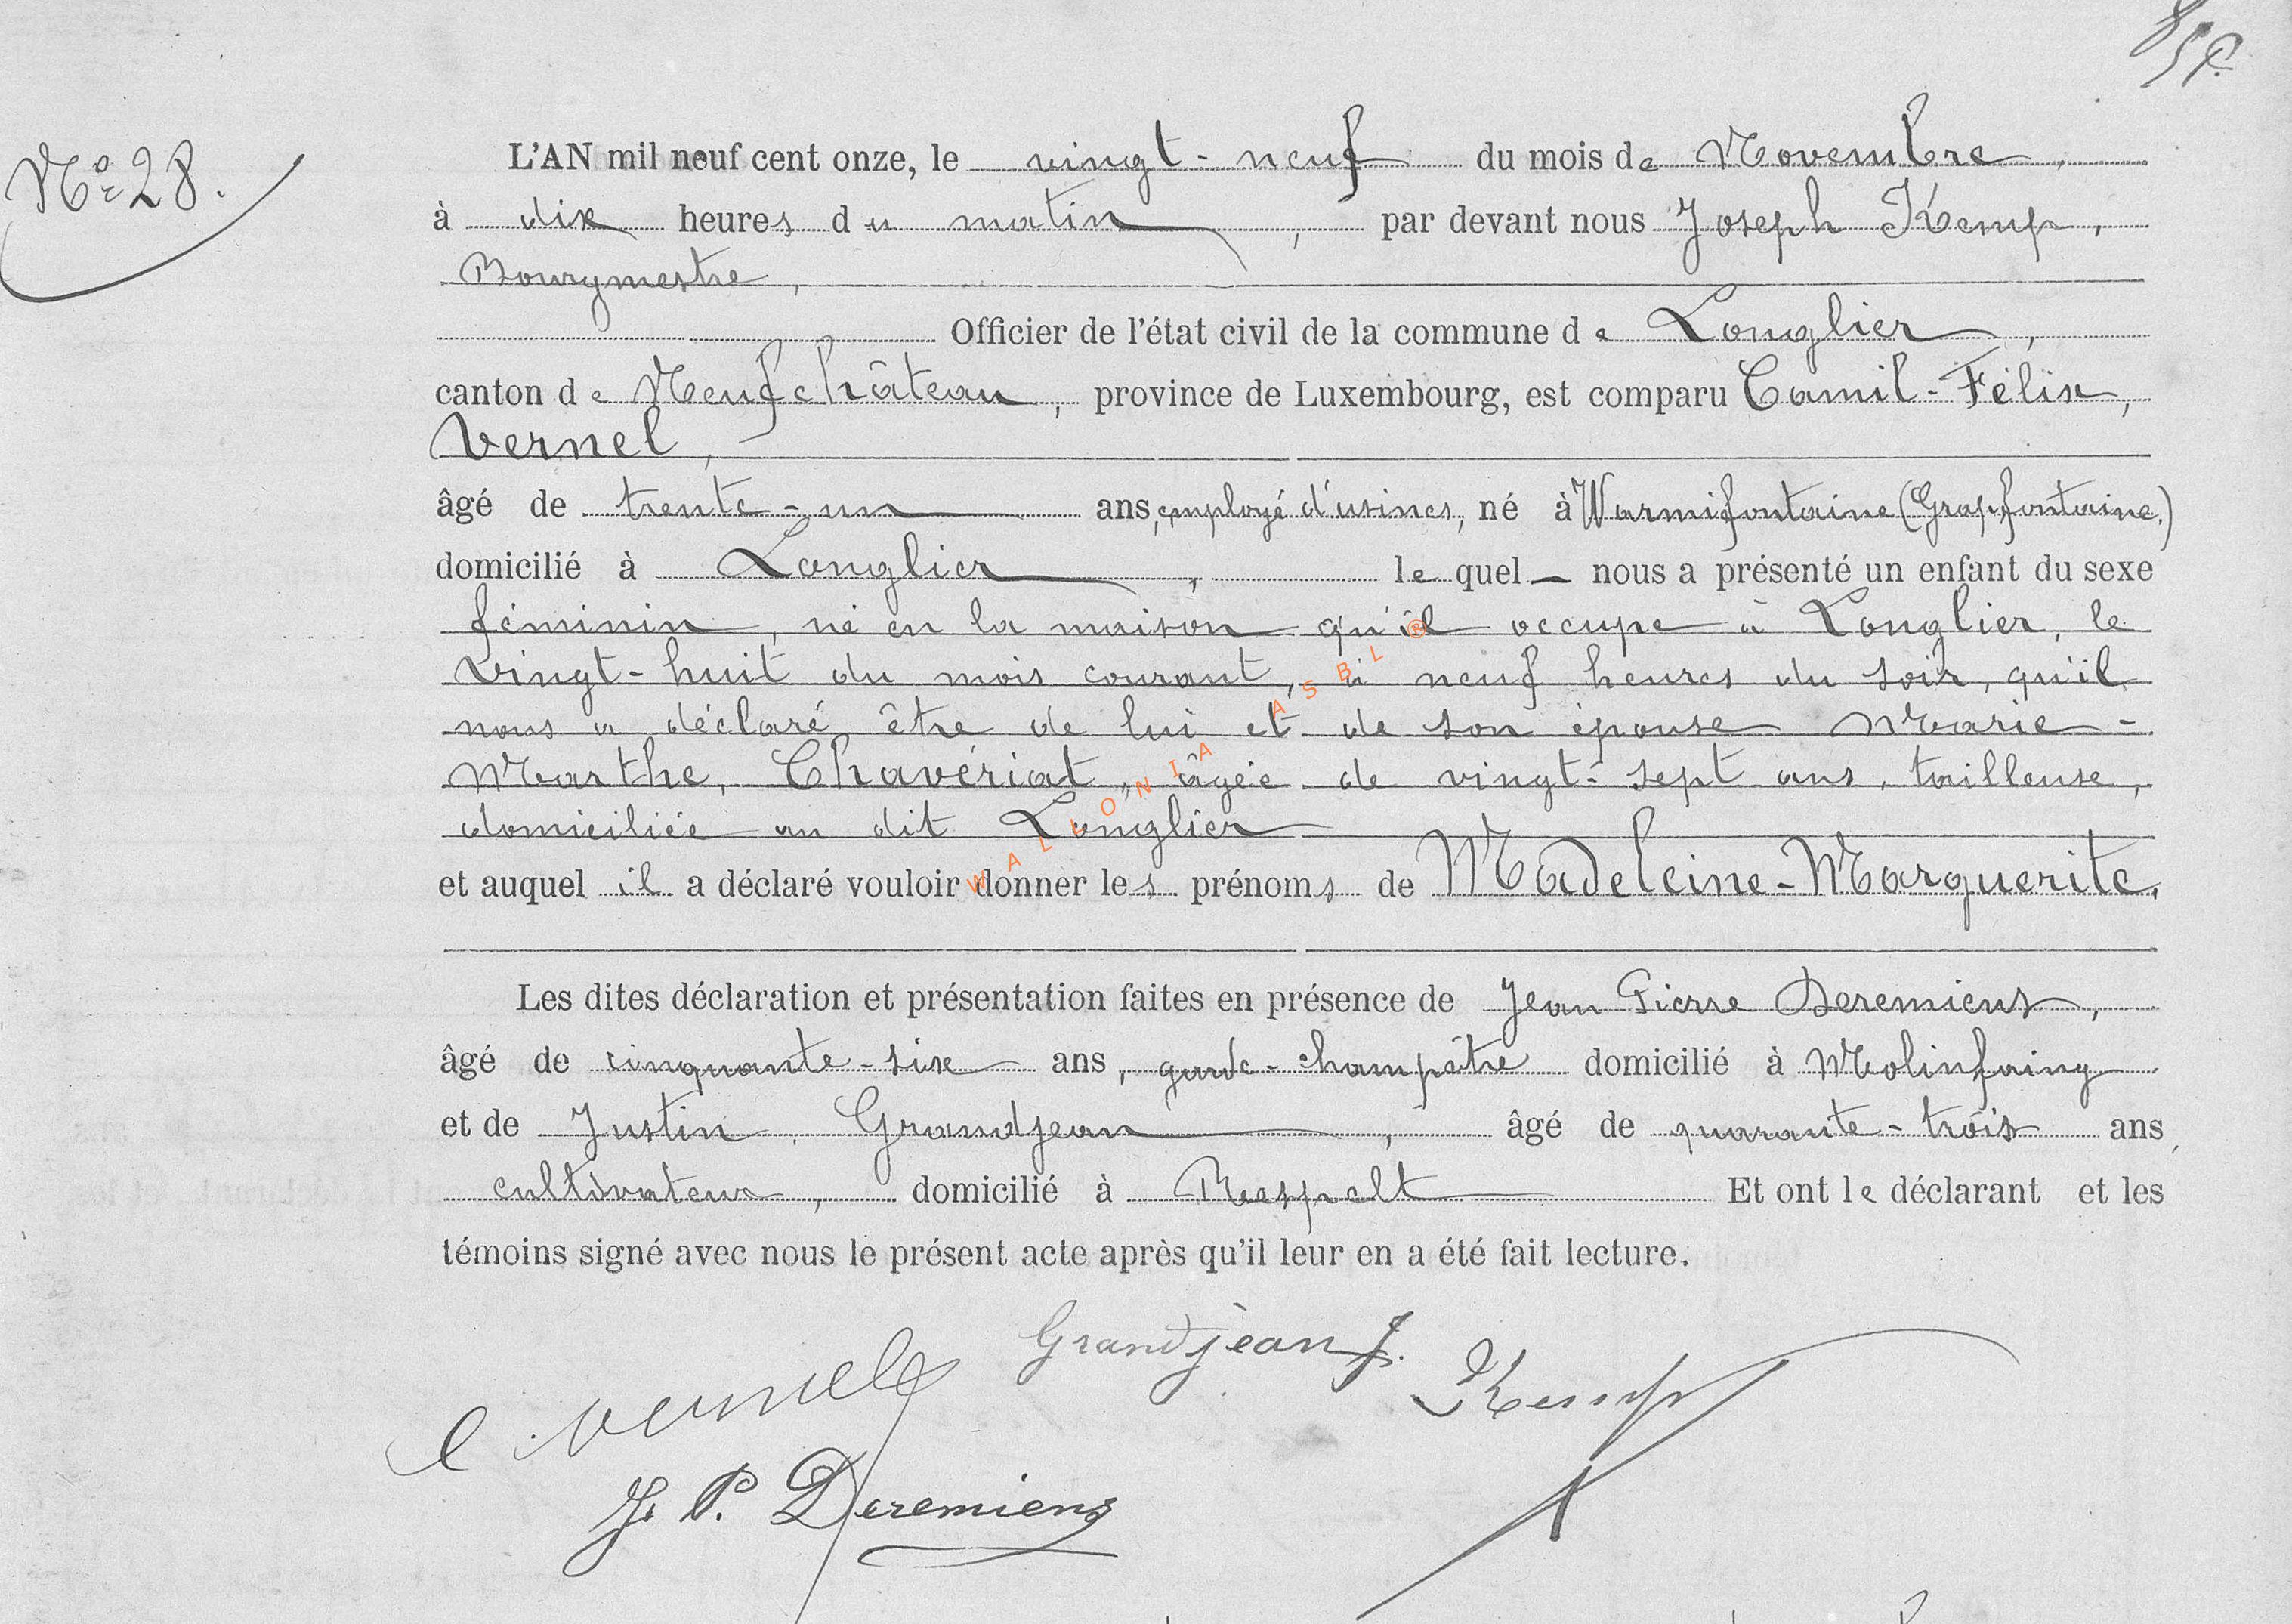 Nº 28.
L'AN mil neuf cent onze, le vingt-neuf du mois de Novembre,
à dix heures du matin, par devant nous Joseph Kemp,
Bourgmestre,
Officier de l'état civil de la commune de Longlier,
canton de Neufchâteau, province de Luxembourg, est comparu Camil-Félix,
Vernel,
âgé de trente-un ans, employé d'usines, né à Warmifontaine (Grapfontaine.)
domicilié à Longlier, lequel nous a présenté un enfant du sexe
féminin, né en la maison qu'il occupe à Longlier, le
vingt-huit du mois courant, à neuf heures du soir, qu'il
nous a déclaré être de lui et de son épouse Marie-
Marthe, Chavériat, âgée de vingt-sept ans, tailleuse,
domiciliée au dit Longlier
et auquel il a déclaré vouloir donner les prénoms de Madeleine-Marguerite.
Les dites déclaration et présentation faites en présence de Jean Pierre Deremiens,
âgé de cinquante-six ans, garde-champêtre domicilié à Molinfaing
et de Justin, Grandjean, âgé de quarante-trois ans,
cultivateur, domicilié à Respelt Et ont le déclarant et les
témoins signé avec nous le présent acte après qu'il leur en a été fait lecture.
Grandjean J.
C. Vernel
Kemp
J. P. Deremiens
WALLONIA ASBL ®